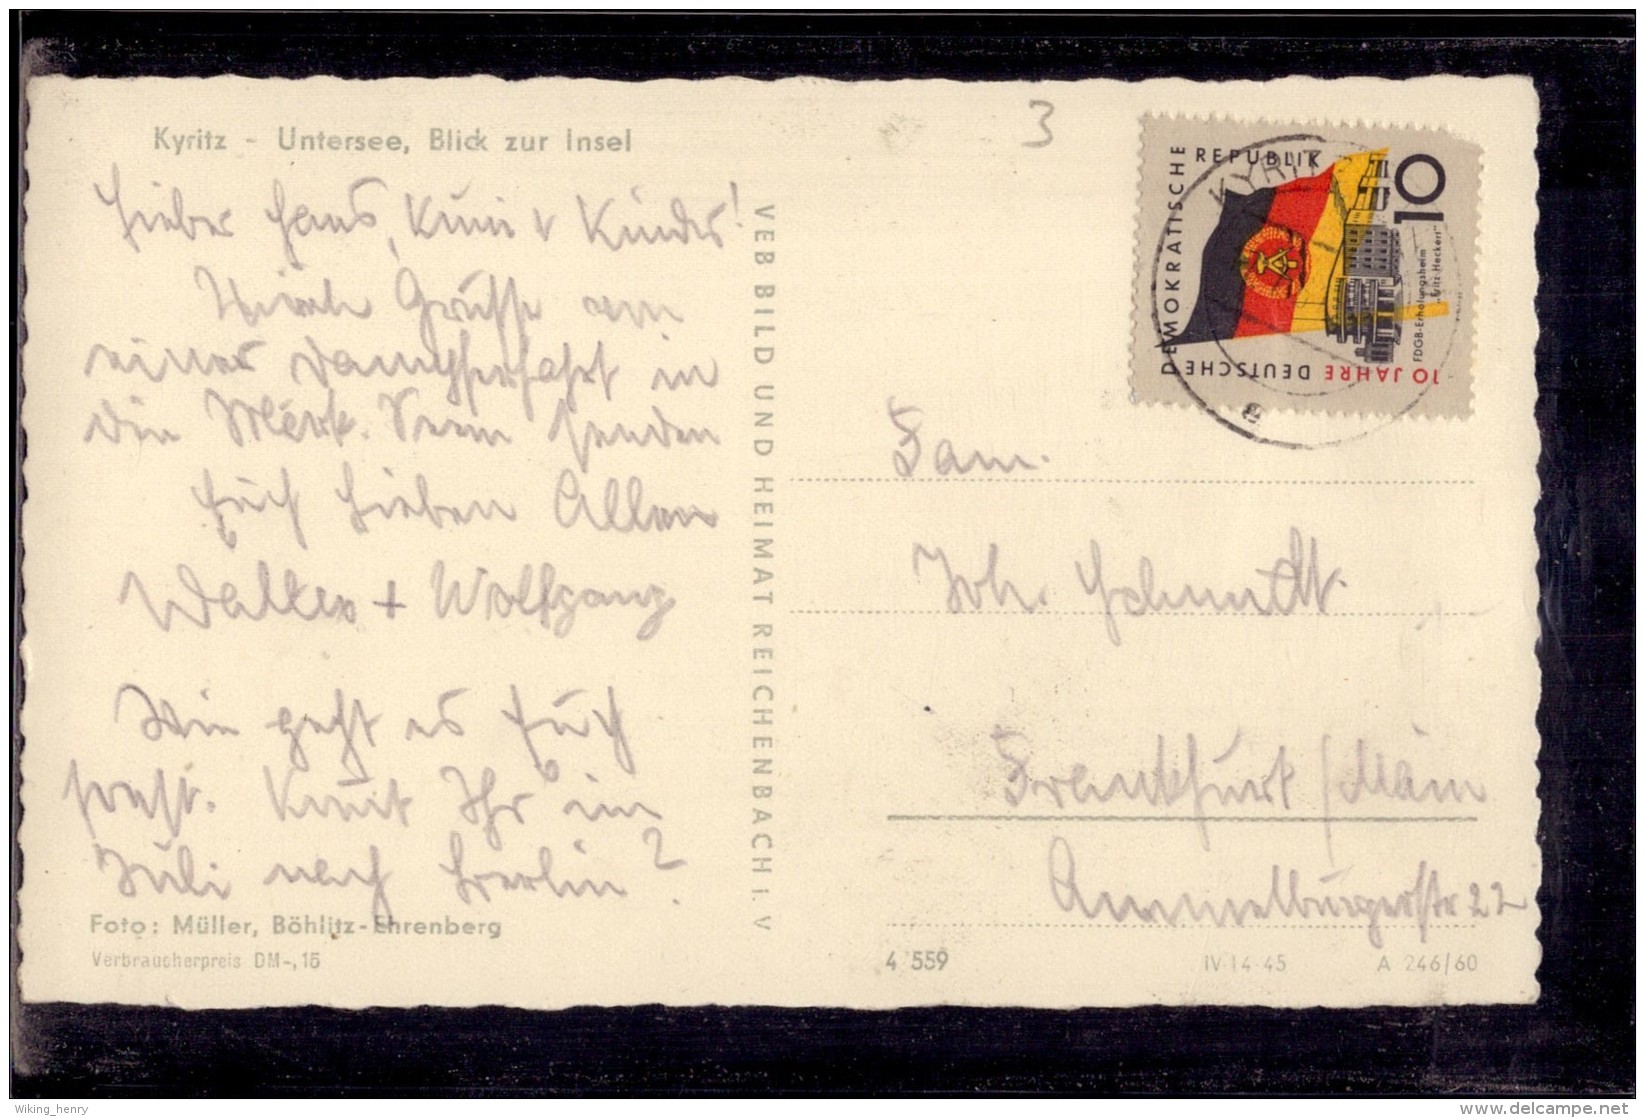 Kyritz - Untersee, Blick zur Insel
3
Lieber Hans, Kuni v Kinder!
Grüsse von
einer Dampferfahrt in
die Märk. Seen senden
Euch Lieben Allen
Walter + Wolfgang
Wie geht es Euch
sonst. Kommt Ihr im
Juli nach Berlin?
Foto: Müller, Böhlitz-Ehrenberg
Verbraucherpreis DM -,15
VEB BILD UND HEIMAT REICHENBACH i. V
10 JAHRE DEUTSCHE
DEMOKRATISCHE
REPUBLIK
10
FDGB-Erholungsheim
"Fritz Heckert"
KYRITZ
a
Fam.
Joh. Schmidt
Frankfurt / Main
Ammelburgerstr 22
4 559
IV-14-45
A 246/60
Wiking_henry
delcampe.net